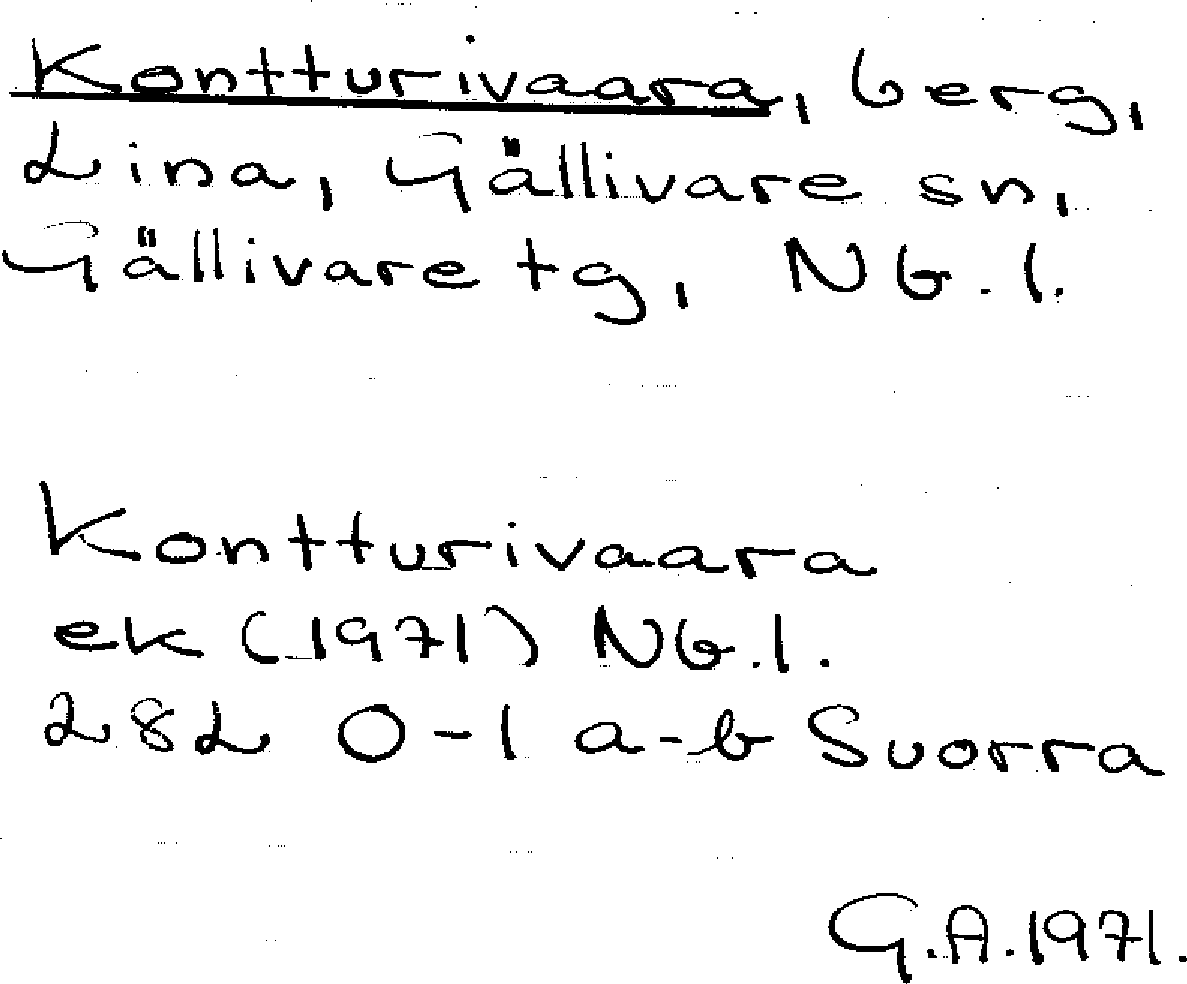 Kontturivaara, berg,
Lina, Gällivare sn,
Gällivare tg, Nb.l.
Kontturivaara
ek (1971) Nb.l.
282 0-1 a-b Suorra
G.A.1971.